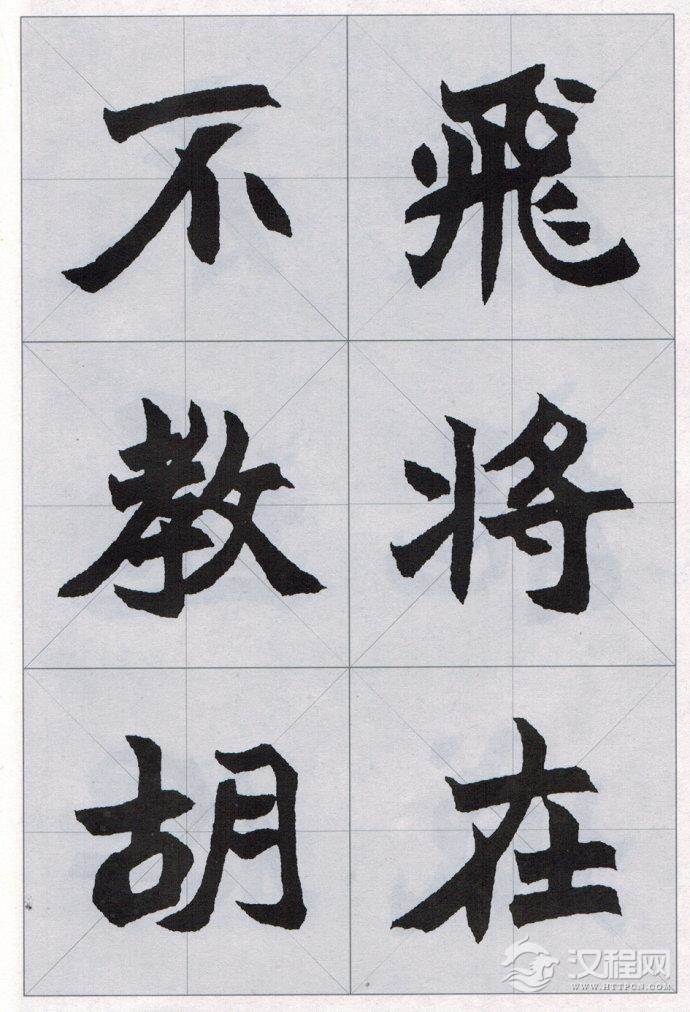 飛将在
不教胡
汉程网
WWW.HTTPCN.COM